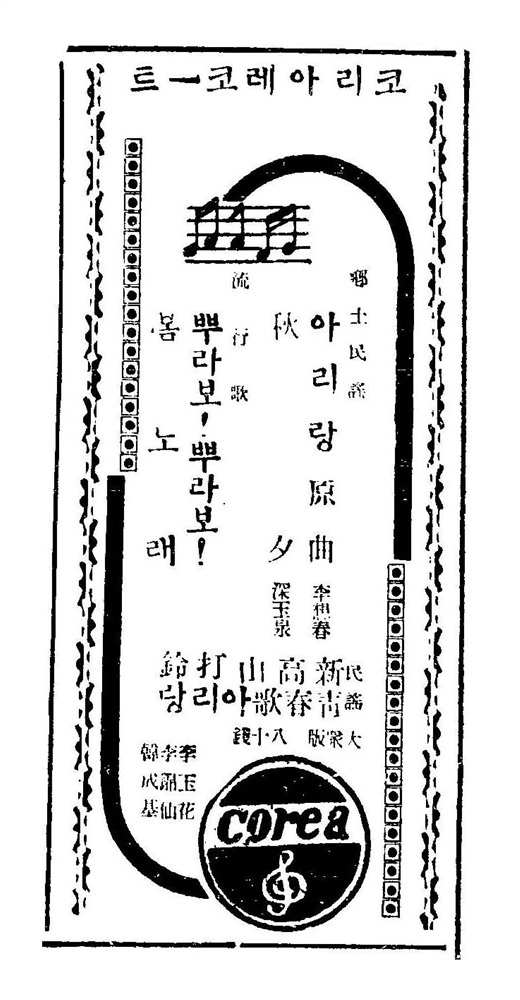 코리아레코ー트
鄕土民謠
아리랑原曲 李想春
秋夕 深玉泉
流行歌
뿌라보!뿌라보!
봄노래
民謠
新高山打鈴
靑春歌아리랑
大衆版 八十錢
李玉花
李錦仙
韓成基
corea